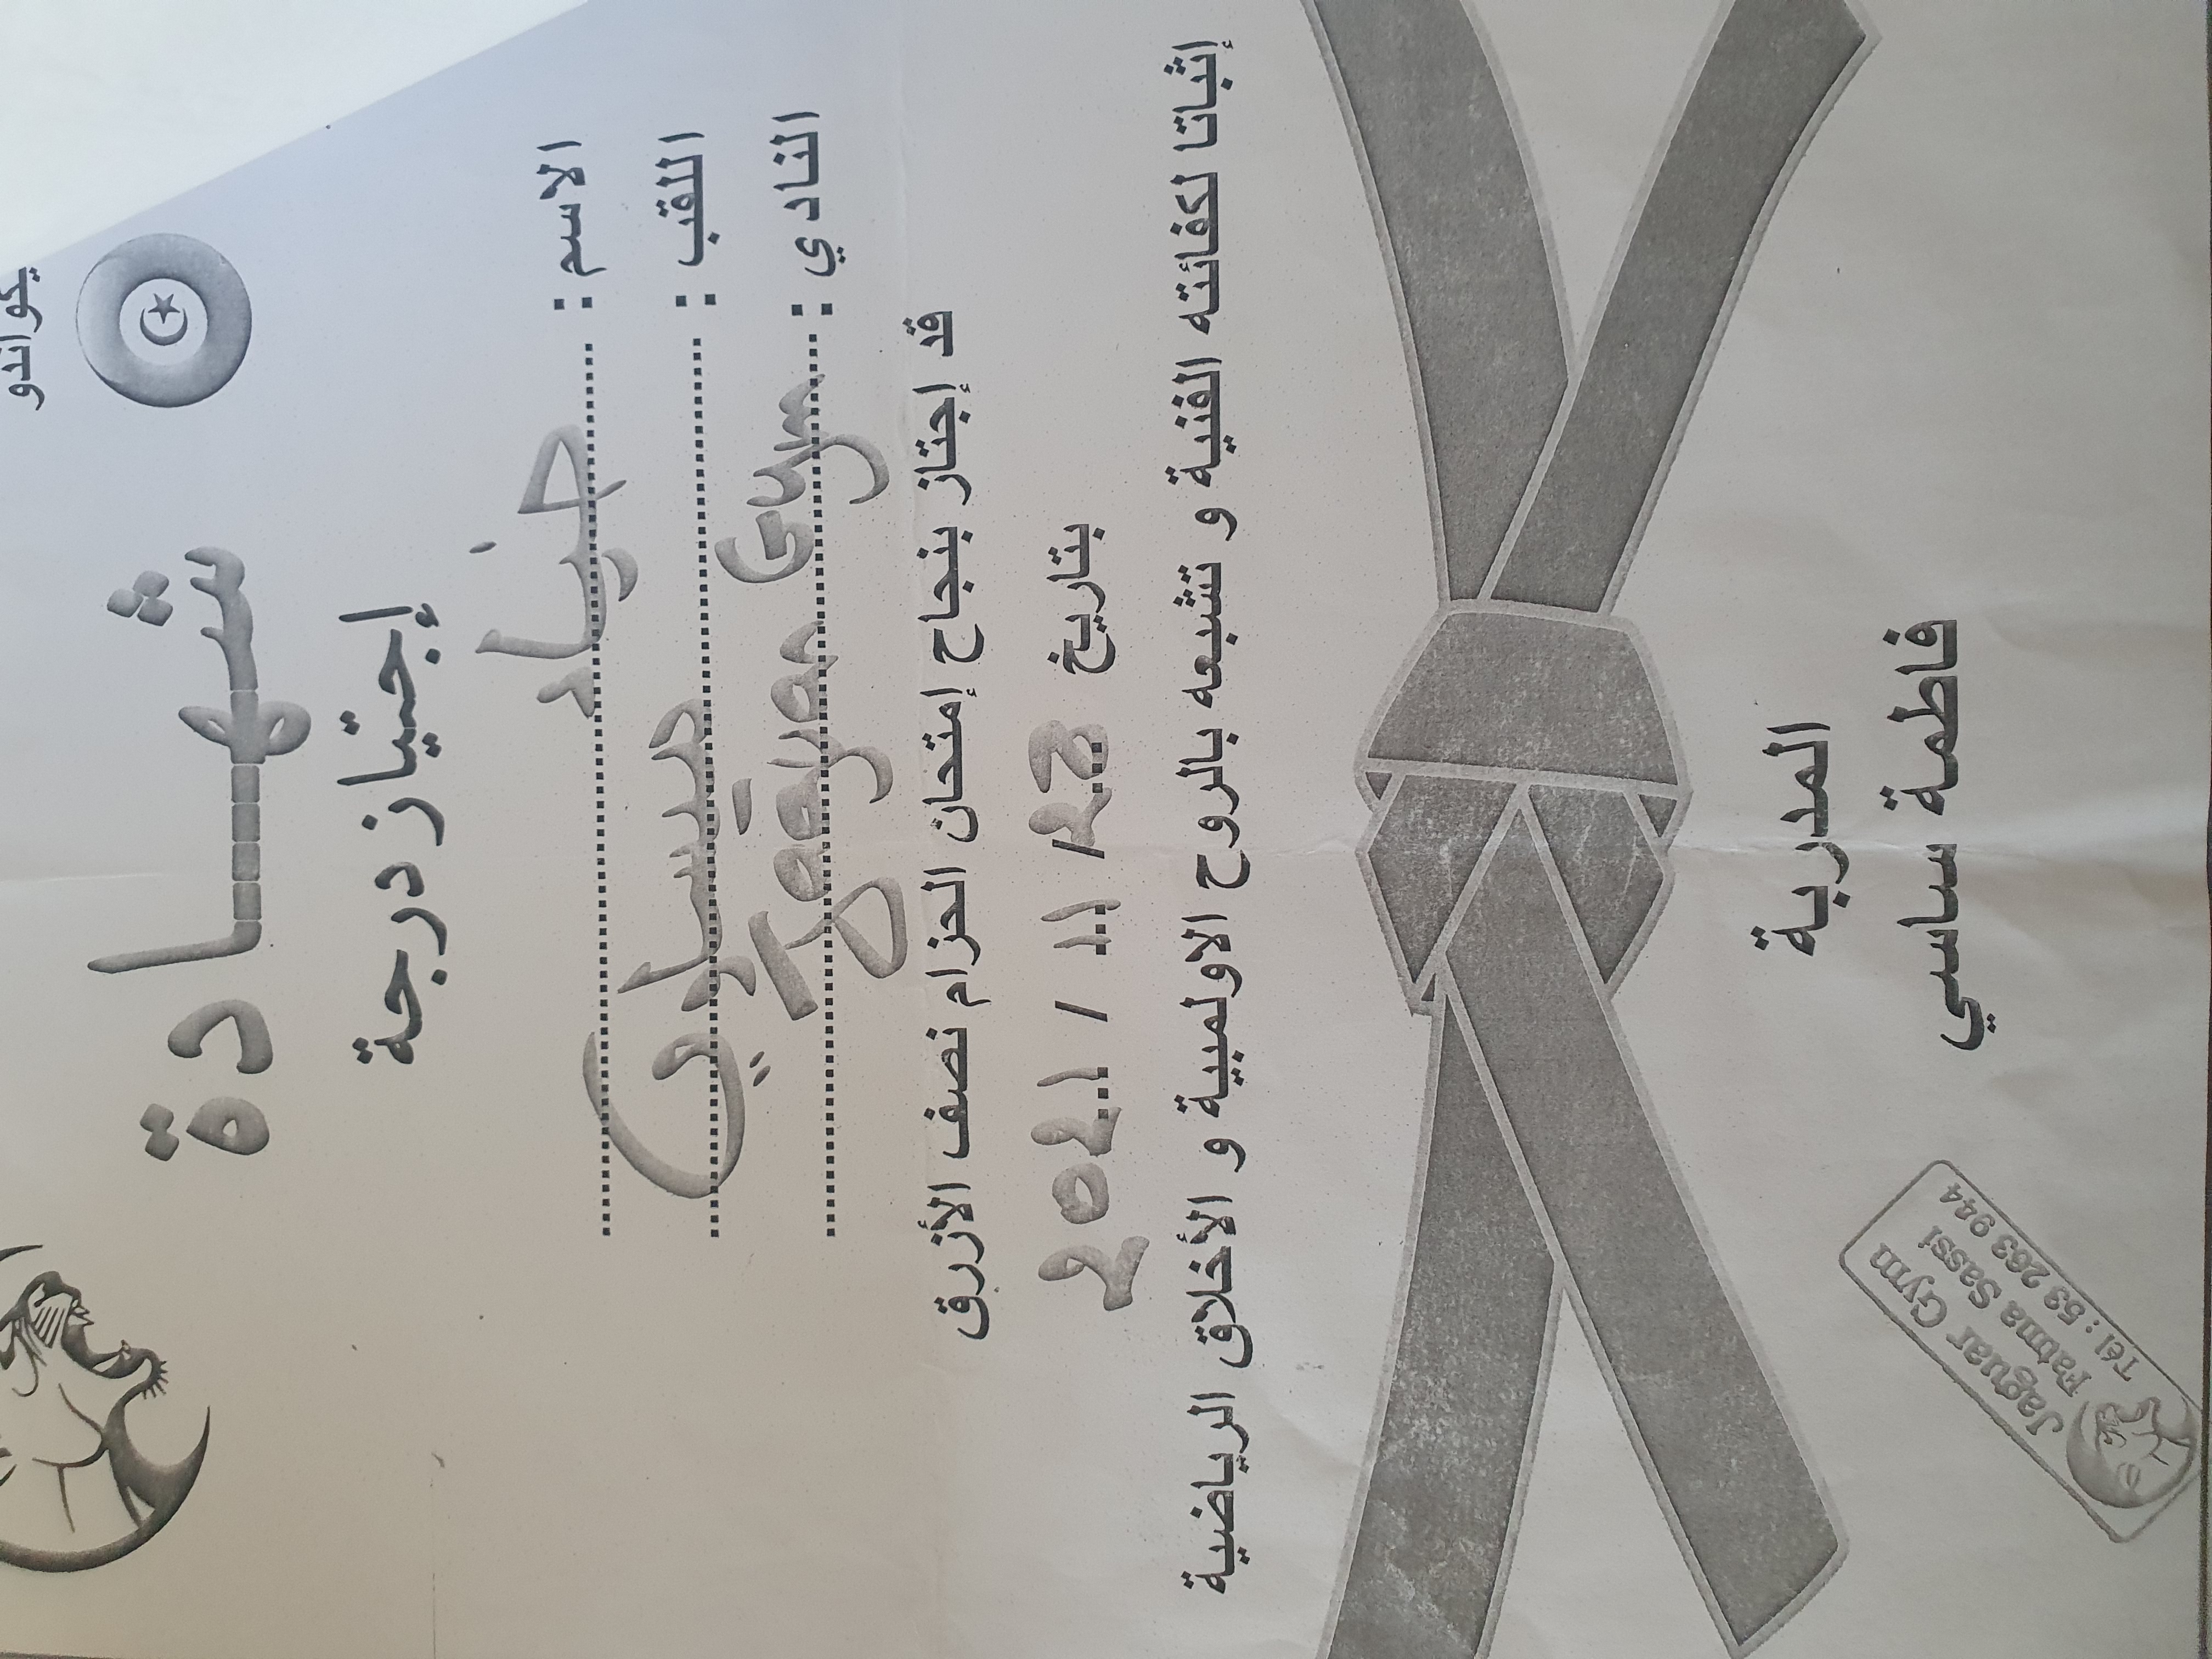 يكواندو
شهادة
إجتياز درجة
الاسم :
اللقب :
النادي : Jaguar Gym
قد إجتاز بنجاح إمتحان الحزام نصف الأزرق
بتاريخ 28 / 11 / 2021
إثباتا لكفائته الفنية و تشبعه بالروح الاولمبية و الأخلاق الرياضية
المدربة
فاطمة ساسي
Jaguar Gym
Fatma Sassi
Tél : 53 263 944